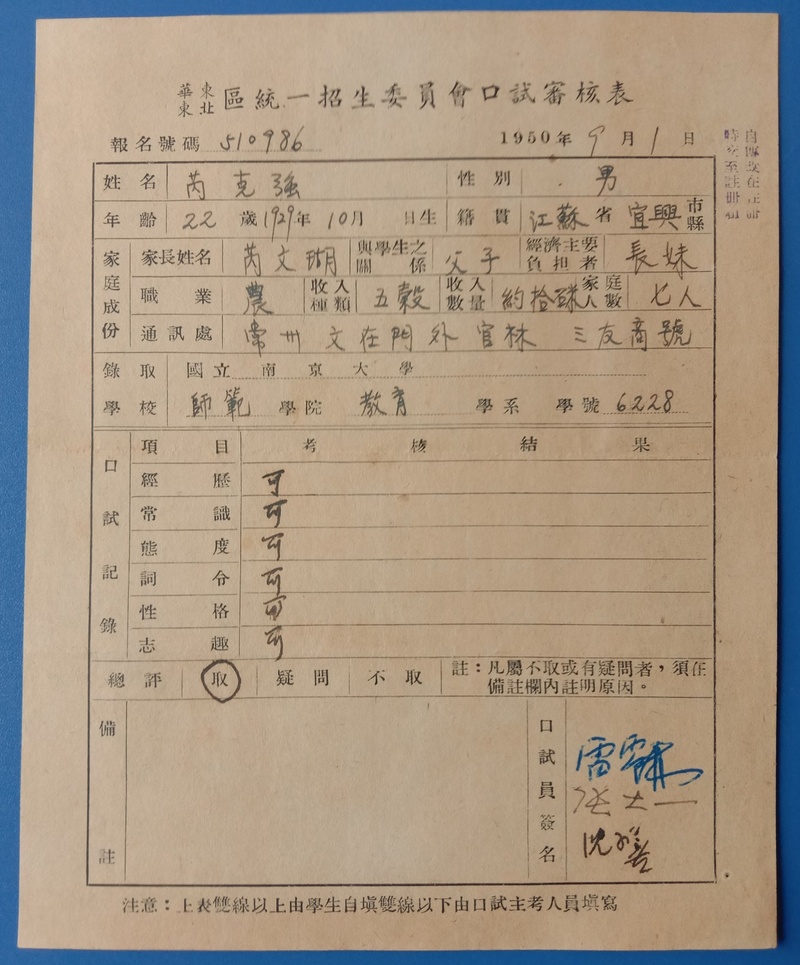 華東東北區統一招生委員會口試審核表
報名號碼 510986 1950年9月1日
姓名 芮克強 性別 男
年齡 22歲 1929年10月 日生 籍貫 江蘇省 宜興 市縣
家庭成份 家長姓名 芮文瑚 與學生之關係 父子 經濟主要負担者 長妹
職業 農 收入種類 五穀 收入數量 約拾 家庭人數 七人
通訊處 常州 文在門外官林 三友商號
錄取 國立南京大學
學校 師範學院 教育 學系 學號 6228
口試記錄 項目 考核結果
經歷 可
常識 可
態度 可
詞令 可
性格 可
志趣 可
總評 取 疑問 不取 註：凡屬不取或有疑問者，須在備註欄內註明原因。
備註 口試員簽名
注意：上表雙線以上由學生自塡雙線以下由口試主考人員塡寫